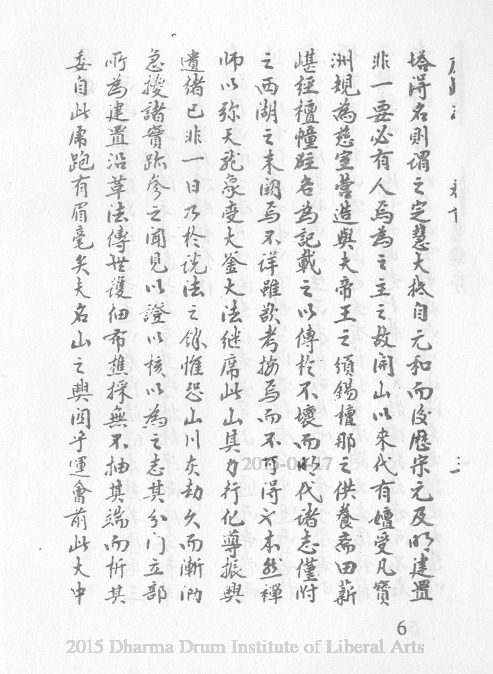 塔得名則謂之定慧大抵自元和而後歷宋元及明建置
非一要必有人焉為之主之故開山以來代有嬗受凡寶
洲規為慈室營造與夫帝王之頒錫檀那之供養齋田薪
嶼經檀幢駐各為記載之以傳於不壞而明代諸志僅附
之西湖之末闕焉不詳雖欲考按焉而不可得父本然禪
師以弥天龍象受大釜大法继席此山其力行化導振興
遺绪已非一日乃於說法之餘惟恐山川灰劫久而漸泐
急搜諸實跡參之聞見以證以核以為之志其分门立部
所為建置沿革法傳世護佃布樵採無不抽其端而析其
委自此虎跑有眉毫矣夫名山之興固乎運會前此大中
2015-04-17
6
2015 Dharma Drum Institute of Liberal Arts